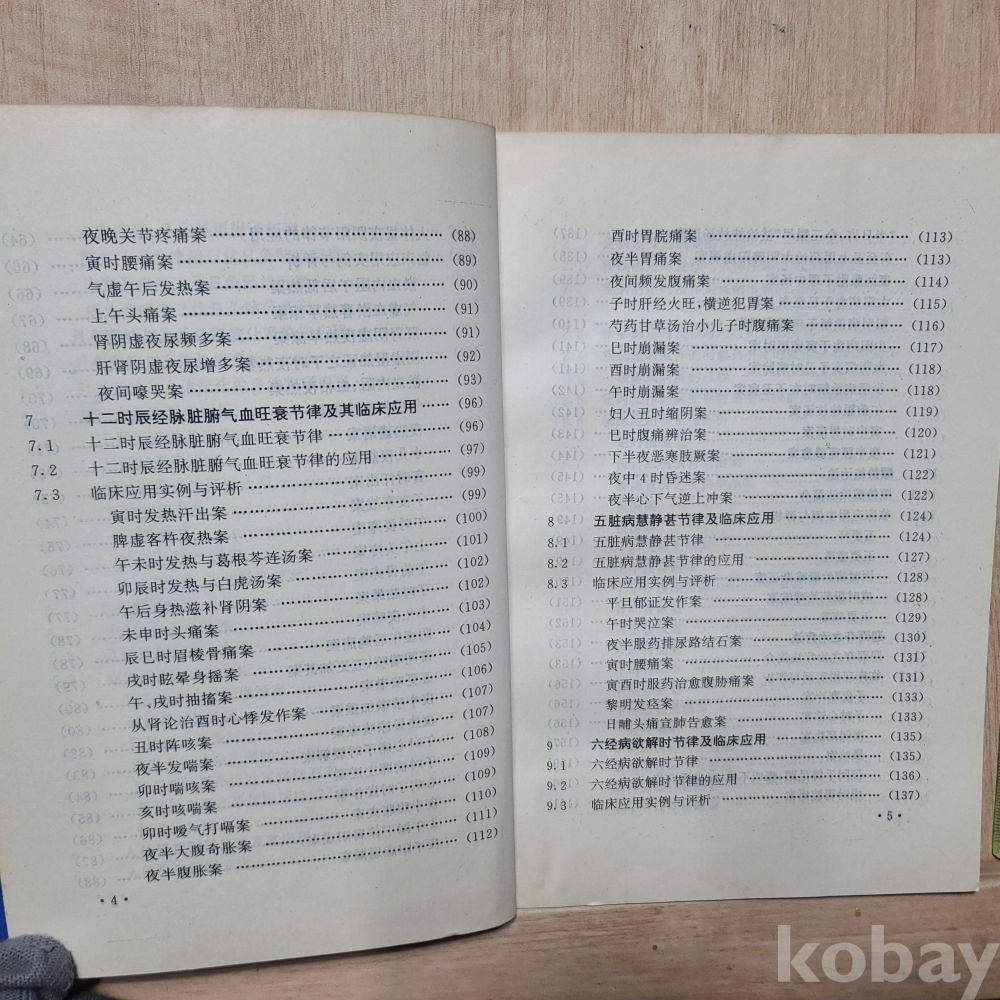 夜晚关节疼痛案 ………………………… (88)
寅时腰痛案 ………………………… (89)
气虚午后发热案 ………………………… (90)
上午头痛案 ………………………… (91)
肾阴虚夜尿频多案 ………………………… (91)
肝肾阴虚夜尿增多案 ………………………… (92)
夜间嚎哭案 ………………………… (93)
7 十二时辰经脉脏腑气血旺衰节律及其临床应用 …… (96)
7.1 十二时辰经脉脏腑气血旺衰节律 ………………… (96)
7.2 十二时辰经脉脏腑气血旺衰节律的应用 ………… (97)
7.3 临床应用实例与评析 ………………………… (99)
寅时发热汗出案 ………………………… (99)
脾虚客杵夜热案 ………………………… (100)
午未时发热与葛根芩连汤案 ………………… (101)
卯辰时发热与白虎汤案 ………………… (102)
午后身热滋补肾阴案 ………………… (102)
未申时头痛案 ………………………… (103)
辰巳时眉棱骨痛案 ………………… (104)
戌时眩晕身摇案 ………………… (105)
午、戌时抽搐案 ………………… (106)
从肾论治酉时心悸发作案 ………………… (107)
丑时阵咳案 ………………………… (107)
夜半发喘案 ………………………… (108)
卯时喘咳案 ………………………… (109)
亥时咳喘案 ………………………… (109)
卯时嗳气打嗝案 ………………… (110)
夜半大腹奇胀案 ………………… (111)
夜半腹胀案 ………………………… (112)
·4·
酉时胃脘痛案 ………………………… (113)
夜半胃痛案 ………………………… (113)
夜间频发腹痛案 ………………………… (114)
子时肝经火旺，横逆犯胃案 ………………… (115)
芍药甘草汤治小儿子时腹痛案 ………………… (116)
巳时崩漏案 ………………………… (117)
酉时崩漏案 ………………………… (118)
午时崩漏案 ………………………… (118)
妇人丑时缩阴案 ………………………… (119)
巳时腹痛辨治案 ………………………… (120)
下半夜恶寒肢厥案 ………………………… (121)
夜中4时昏迷案 ………………………… (122)
夜半心下气逆上冲案 ………………………… (122)
8 五脏病慧静甚节律及临床应用 ………………… (124)
8.1 五脏病慧静甚节律 ………………………… (124)
8.2 五脏病慧静甚节律的应用 ………………… (127)
8.3 临床应用实例与评析 ………………………… (128)
平旦郁证发作案 ………………………… (128)
午时哭泣案 ………………………… (129)
夜半服药排尿路结石案 ………………… (130)
寅时腰痛案 ………………………… (131)
寅酉时服药治愈腹胁痛案 ………………… (131)
黎明发痉案 ………………………… (133)
日晡头痛宣肺告愈案 ………………… (133)
9 六经病欲解时节律及临床应用 ………………… (135)
9.1 六经病欲解时节律 ………………………… (135)
9.2 六经病欲解时节律的应用 ………………… (136)
9.3 临床应用实例与评析 ………………………… (137)
·5·
kobay